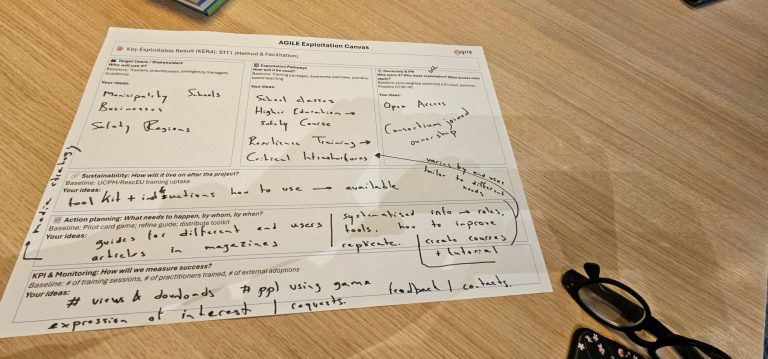 AGILE Exploitation Canvas
Key Exploitable Result (KER4): STT1 (Method & Facilitation)
Target Users / Stakeholders
Who will use it?
Baseline: Trainers, practitioners, emergency managers, academia.
Your ideas:
Municipality Schools
Businesses
Safety Regions
Exploitation Pathways
How will it be used?
Baseline: Training packages, awareness exercises, scenario-based teaching
Your ideas:
School classes
Higher Education →
Safety Course
Resilience Training →
Critical Infrastructures
Ownership & IPR
Your ideas:
Open Access
Consortium joined
ownership
varies by end user
tailor to different
needs
media strategy
Sustainability: How will it live on after the project?
Baseline: UCPM/RescEU training uptake
Your ideas:
tool kit + instructions how to use → available
Action planning: What needs to happen, by whom, by when?
Baseline: Pilot card game; refine guide; distribute toolkit
Your ideas:
guides for different end users
articles in magazines
systematised info → roles,
tools, how to improve
replicate.
create courses
+ tutorial
KPI & Monitoring: How will we measure success?
Baseline: # of training sessions, # of practitioners trained, # of external adoptions
Your ideas:
# views & dowloads # ppl using game feedback / contacts.
expression of interest / requests.